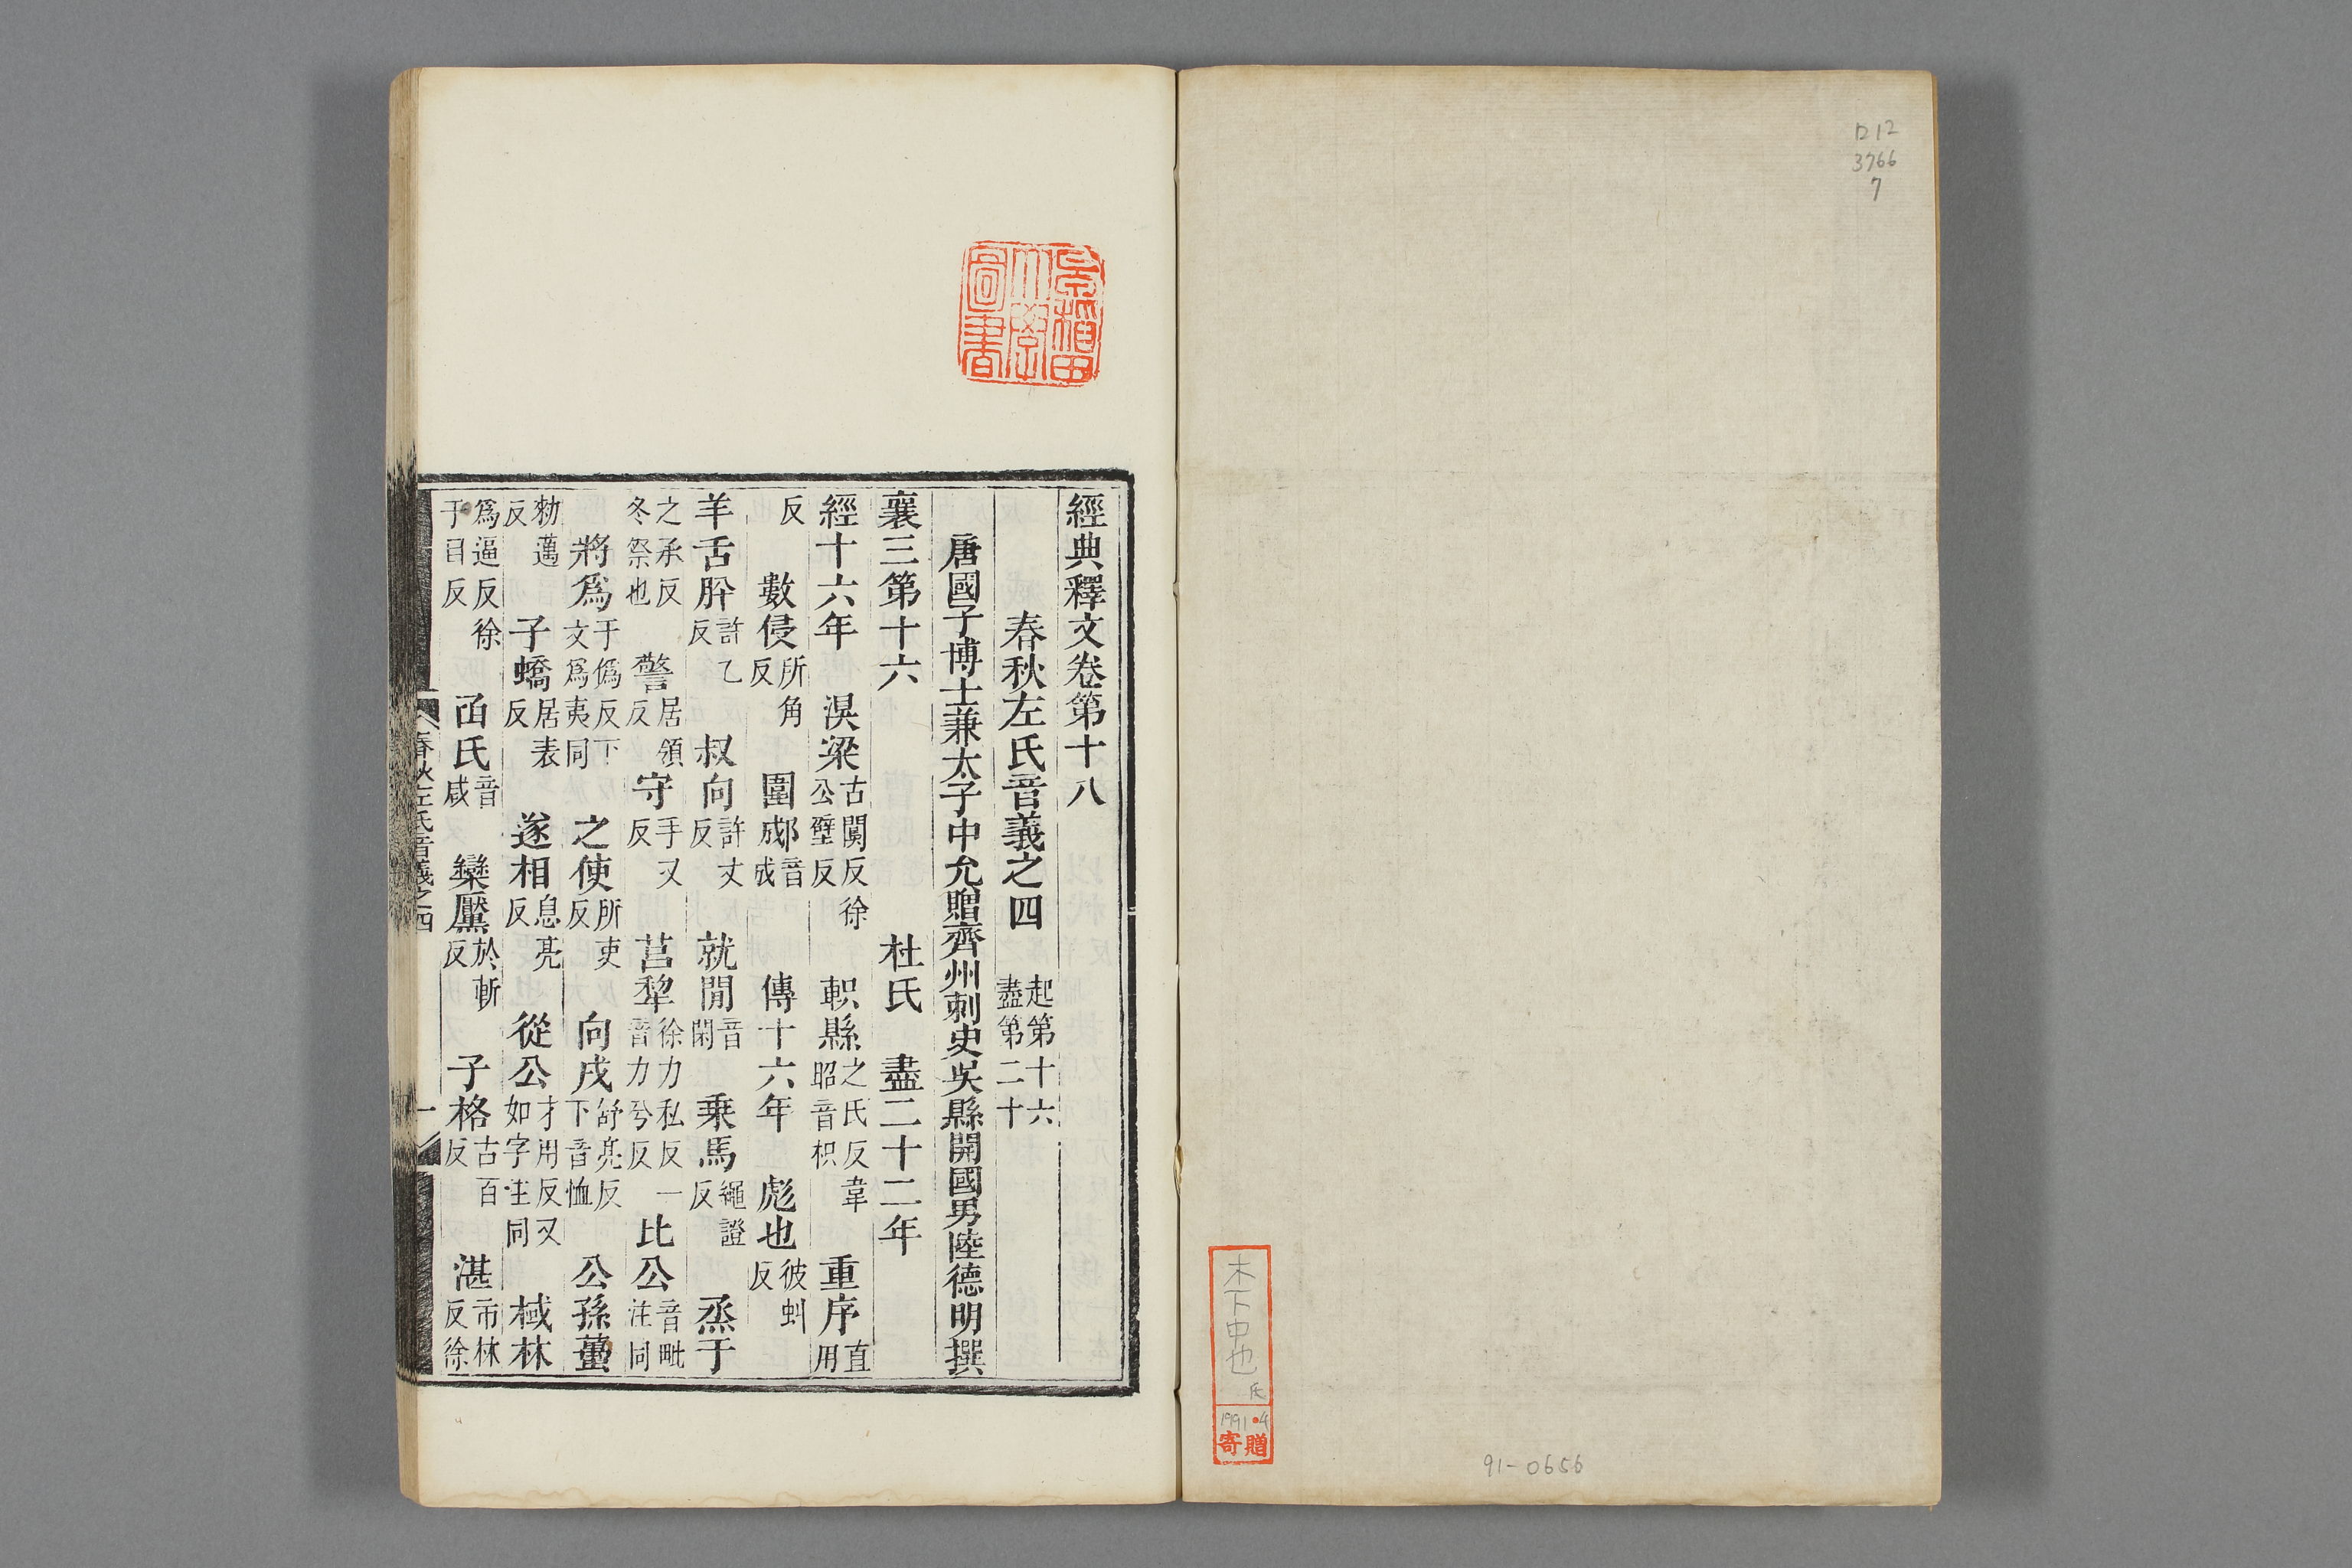 ロ12
3766
7
木下中也氏
1991.4
寄贈
91-0656
早稻田大學圖書
經典釋文卷第十八
春秋左氏音義之四 起第十六盡第二十
唐國子博士兼太子中允贈齊州刺史吳縣開國男陸德明撰
襄三第十六 杜氏 盡二十二年
經十六年 湨梁 古闃反徐公壁反 軹縣 之氏反韋昭音枳 重序 直用
反 數侵 所角反 圍郕 音成 傳十六年 彪也 彼虯反
羊舌肸 許乙反 叔向 許丈反 就閒 音閑 乗馬 繩證反 烝于
之承反冬祭也 警 居領反 守 手又反 莒犂 徐力私反一音力兮反 比公 音毗注同
將爲 于僞反下文爲夷同 之使 所吏反 向戌 舒亮反下音恤 公孫蠆
勑邁反 子蟜 居表反 遂相 息亮反 從公 才用反又如字注同 棫林
爲逼反徐于目反 函氏 音咸 欒黶 於斬反 子格 古百反 湛 市林反徐
春秋左氏音義之四 一